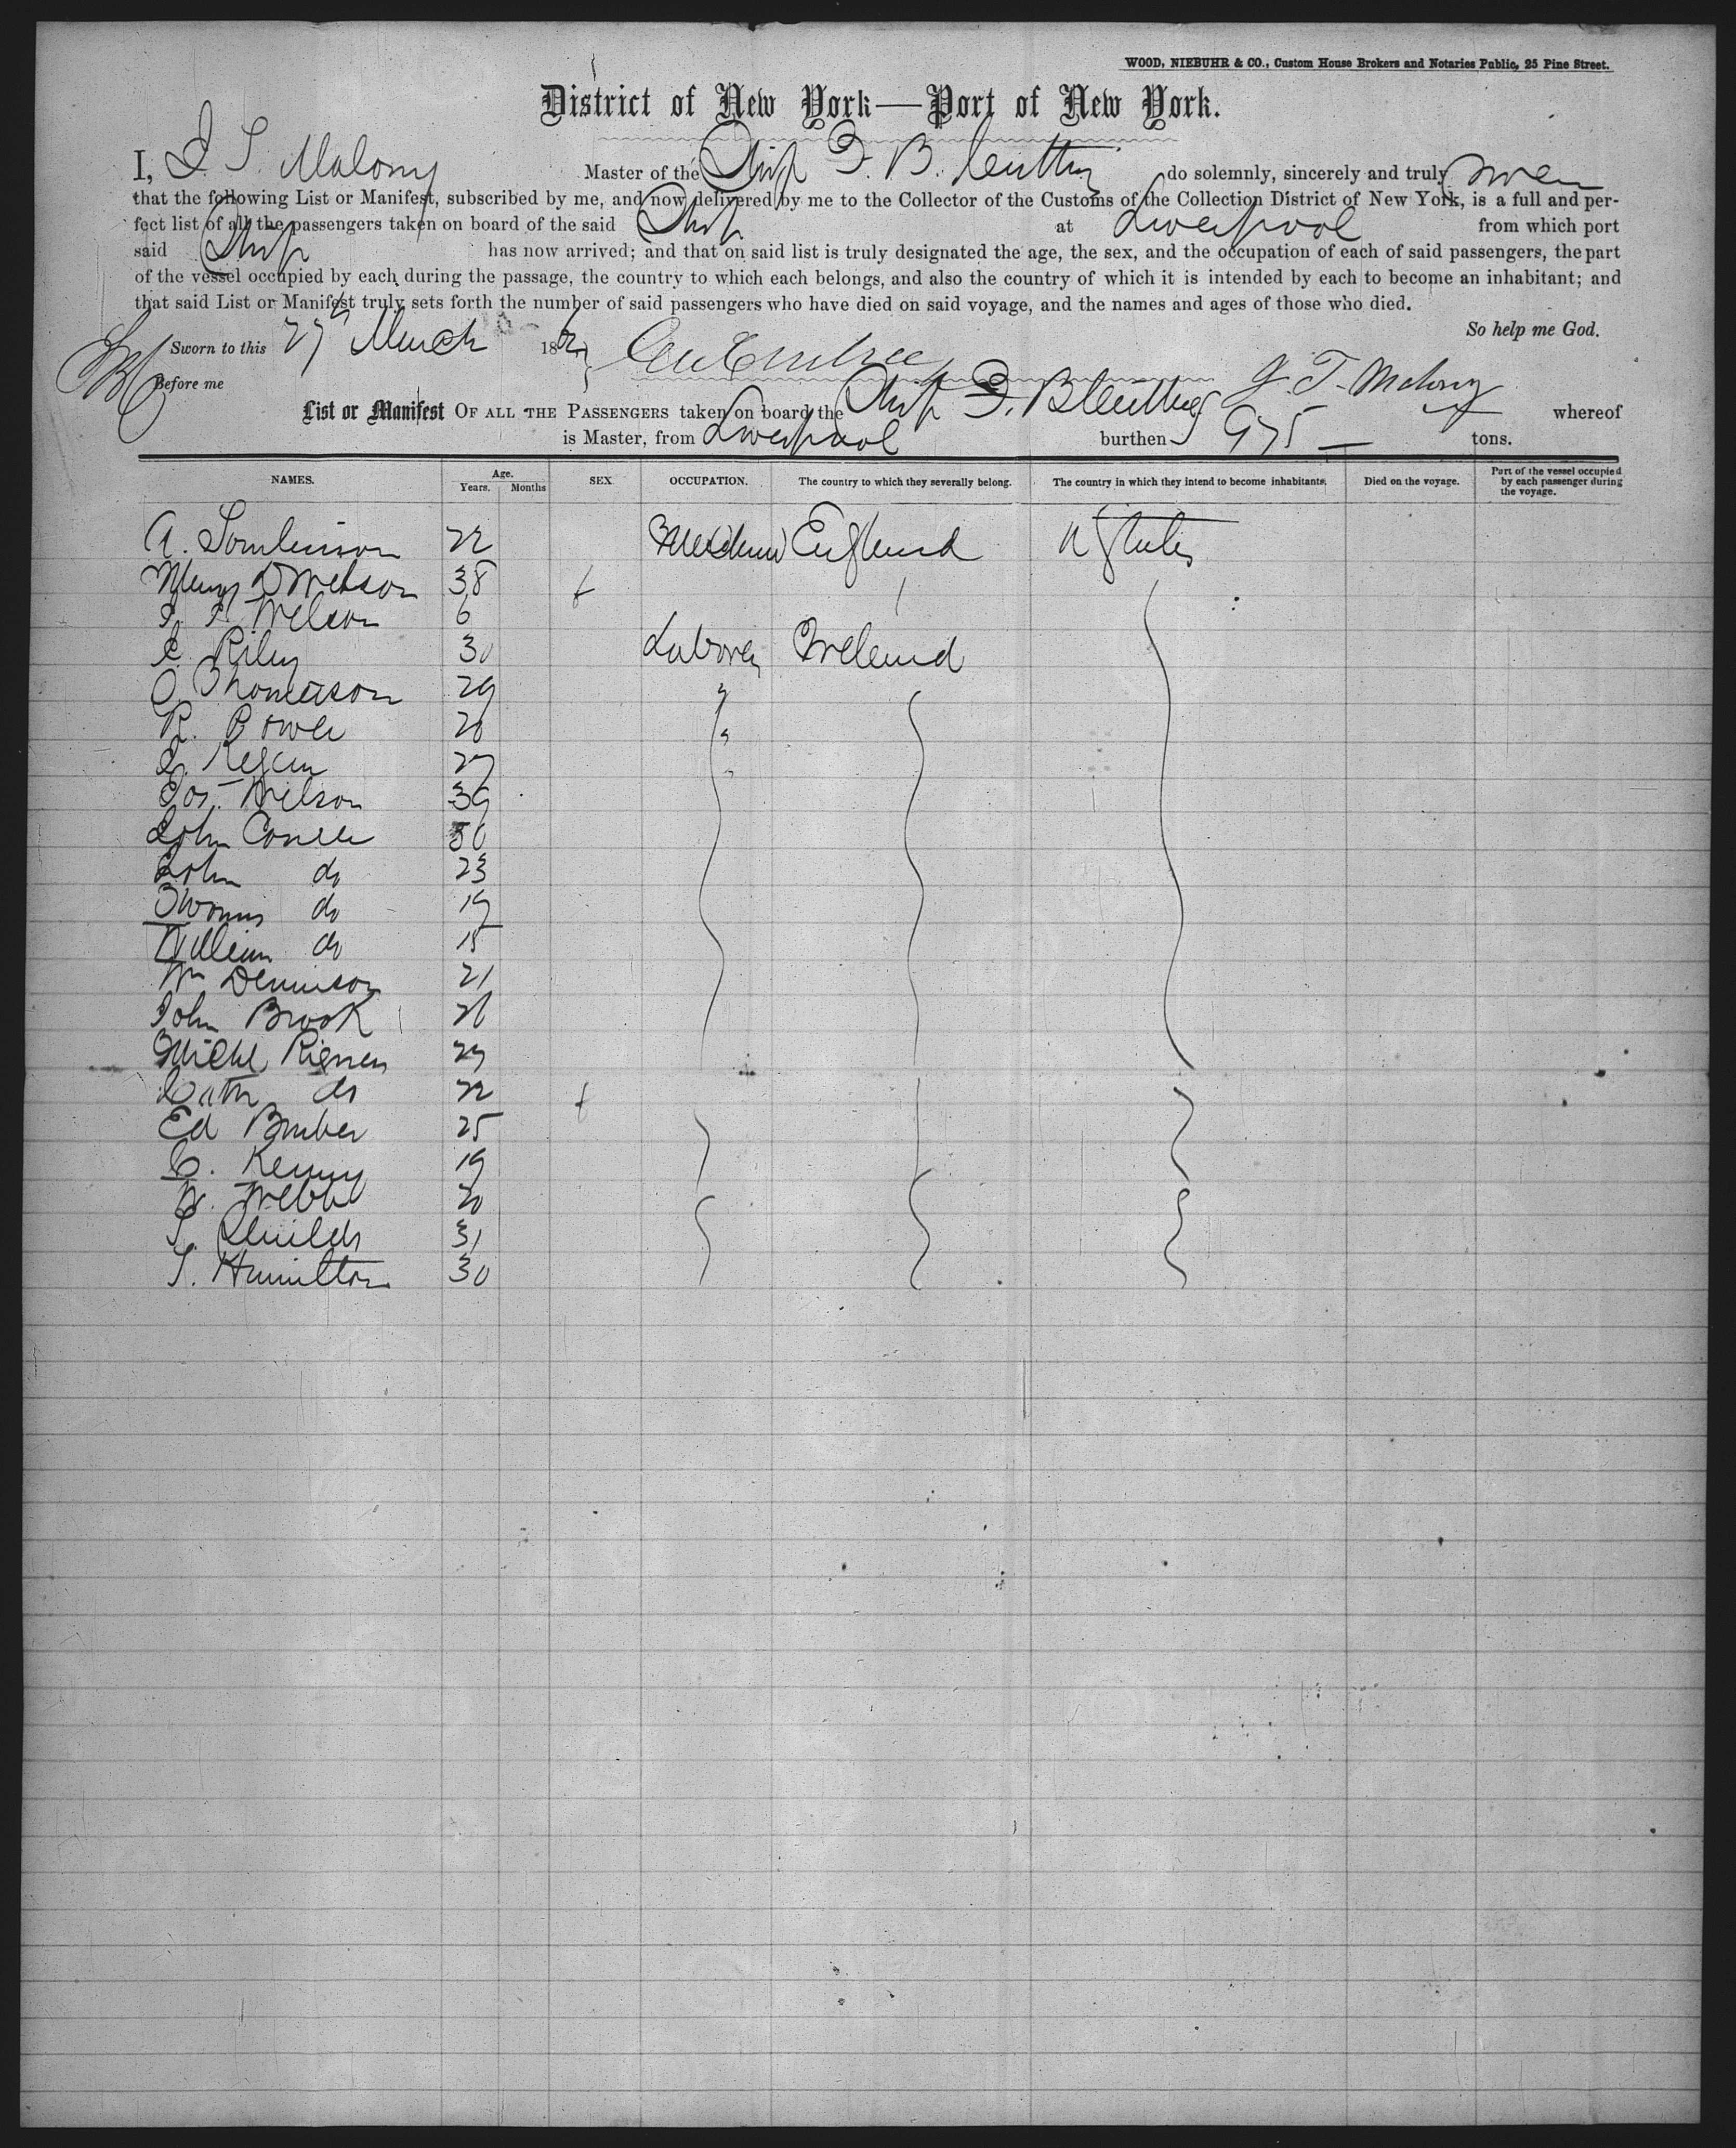 WOOD, NIEBUHR & CO., Custom House Brokers and Notaries Public, 25 Pine Street.
District of New York—Port of New York.
I, J. T. Malony Master of the Ship F. B. Cutting do solemnly, sincerely and truly swear
that the following List or Manifest, subscribed by me, and now delivered by me to the Collector of the Customs of the Collection District of New York, is a full and per-
fect list of all the passengers taken on board of the said Ship at Liverpool from which port
said Ship has now arrived; and that on said list is truly designated the age, the sex, and the occupation of each of said passengers, the part
of the vessel occupied by each during the passage, the country to which each belongs, and also the country of which it is intended by each to become an inhabitant; and
that said List or Manifest truly sets forth the number of said passengers who have died on said voyage, and the names and ages of those who died.
So help me God.
Sworn to this 27th March 186
Before me J. T. Malony
List or Manifest OF ALL THE PASSENGERS taken on board the Ship F. B. Cutting whereof
is Master, from Liverpool burthen 975 — tons.
NAMES. Age. Years. Months SEX. OCCUPATION. The country to which they severally belong. The country in which they intend to become inhabitants. Died on the voyage. Part of the vessel occupied by each passenger during the voyage.
A. Tomlinson 22 England U States
Mary Wilson 38 f
Wilson 6
Riley 30 Laborer Ireland
O. Thomasson 29 "
R. Power 20 "
Regan 27 "
Jos. Wilson 39
John 50
John do 23
Thomas do 19
William do 15
Wm Dennison 21
John Brook 26
Michl 29
Cath do 22 f
Ed Barber 25
C. Kenny 19
W. Webb 20
T. Childs 31
T. Hamilton 30